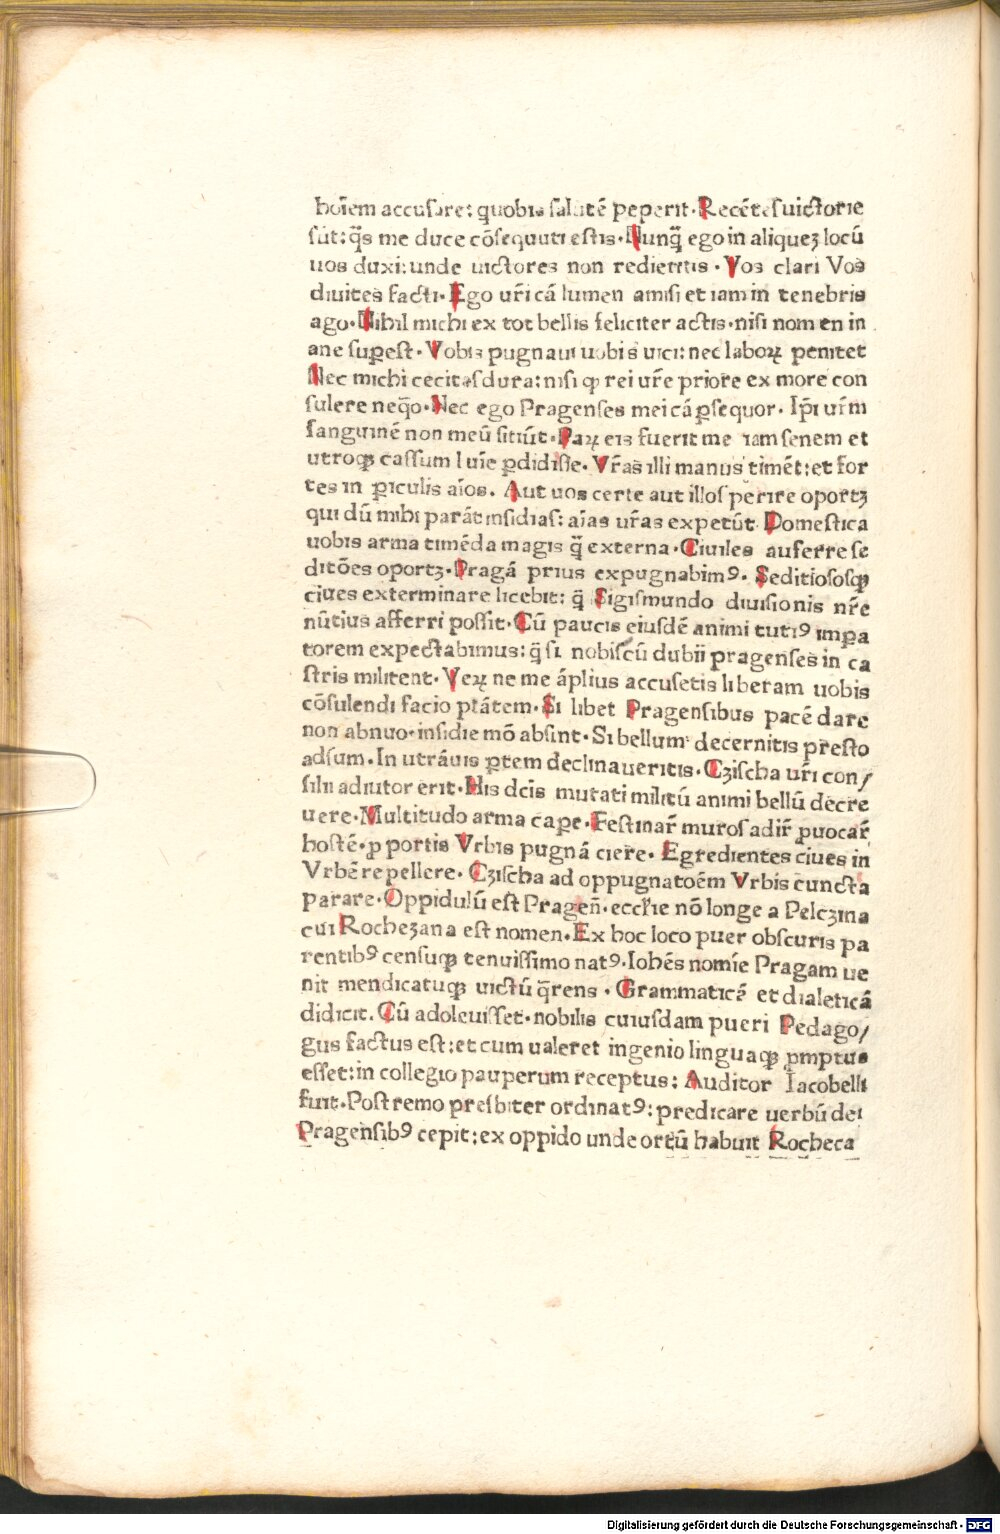 hoīem accusare: quobis salutē peperit. Recētes uictorie
sūt: q̄s me duce cōsequuti estis. Nunq̄ ego in aliqueʒ locū
uos duxi: unde uictores non redieritis. Vos clari Vos
diuites facti. Ego ur̄i cā lumen amisi et iam in tenebris
ago. Nihil michi ex tot bellis feliciter actis. nisi nomen in
ane suꝑest. Vobis pugnaui uobis uici: nec laboꝝ penitet
Nec michi cecitas dura: nisi ꝙ rei ur̄e priore ex more con
sulere neq̄o. Nec ego Pragenses mei cā ꝑsequor. Ip̄i ur̄m
sanguinē non meū sitiūt. Paꝝ eis fuerit me iam senem et
utroqꝫ cassum lūīe ꝑdidisse. Vr̄as illi manus timēt: et for
tes in ꝑiculis aīos. Aut uos certe aut illos perire oportꝫ
qui dū mihi parāt insidias: aīas ur̄as expetūt. Domestica
uobis arma timēda magis q̄ externa. Ciuiles auferre se
ditōes oportꝫ. Pragā prius expugnabimꝰ. Seditiososqꝫ
ciues exterminare licebit: q̄ Sigismundo diuisionis nr̄e
nūtius afferri possit. Cū paucis eiusdē animi tutiꝰ imꝑa
torem expectabimus: q̄ si nobiscū dubii pragenses in ca
stris militent. Veꝝ ne me āplius accusetis liberam uobis
cōsulendi facio ptātem. Si libet Pragensibus pacē dare
non abnuo. insidie mō absint. Si bellum decernitis presto
adsum. In utrāuis ꝑtem declinaueritis. Czischa ur̄i con/
silii adiutor erit. His dcis mutati militū animi bellū decre
uere. Multitudo arma capere. Festinar̄ muros adir̄ ꝓuocar̄
hostē. ꝓ portis Vrbis pugnā ciere. Egredientes ciues in
Vrbē repellere. Czischa ad oppugnatoēm Vrbis cuncta
parare. Oppidulū est Pragen̄. eccl̄ie nō longe a Pelczina
cui Rochezana est nomen. Ex hoc loco puer obscuris pa
rentibꝰ censuqꝫ tenuissimo natꝰ. Iohēs nomīe Pragam ue
nit mendicatuqꝫ uictū q̄rens. Grammaticā et dialeticā
didicit. Cū adoleuisset. nobilis cuiusdam pueri Pedago/
gus factus est: et cum ualeret ingenio linguaqꝫ ꝓmptus
esset: in collegio pauperum receptus: Auditor Iacobelli
fuit. Postremo presbiter ordinatꝰ: predicare uerbū dei
Pragensibꝰ cepit: ex oppido unde ortū habuit Rocheca
Digitalisierung gefördert durch die Deutsche Forschungsgemeinschaft - DFG